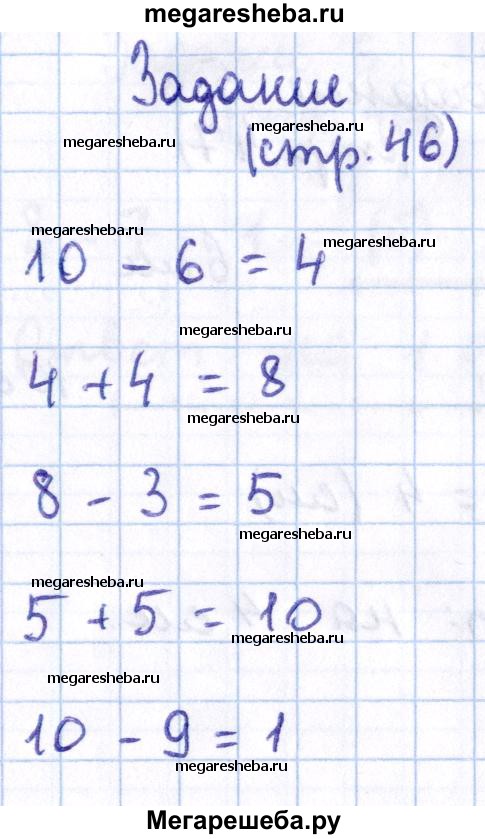 megaresheba.ru
Задание
megaresheba.ru
megaresheba.ru
(стр. 46)
megaresheba.ru
megaresheba.ru
10 - 6 = 4
megaresheba.ru
4 + 4 = 8
megaresheba.ru
8 - 3 = 5
megaresheba.ru
megaresheba.ru
5 + 5 = 10
megaresheba.ru
megaresheba.ru
10 - 9 = 1
megaresheba.ru
Мегарешеба.ру